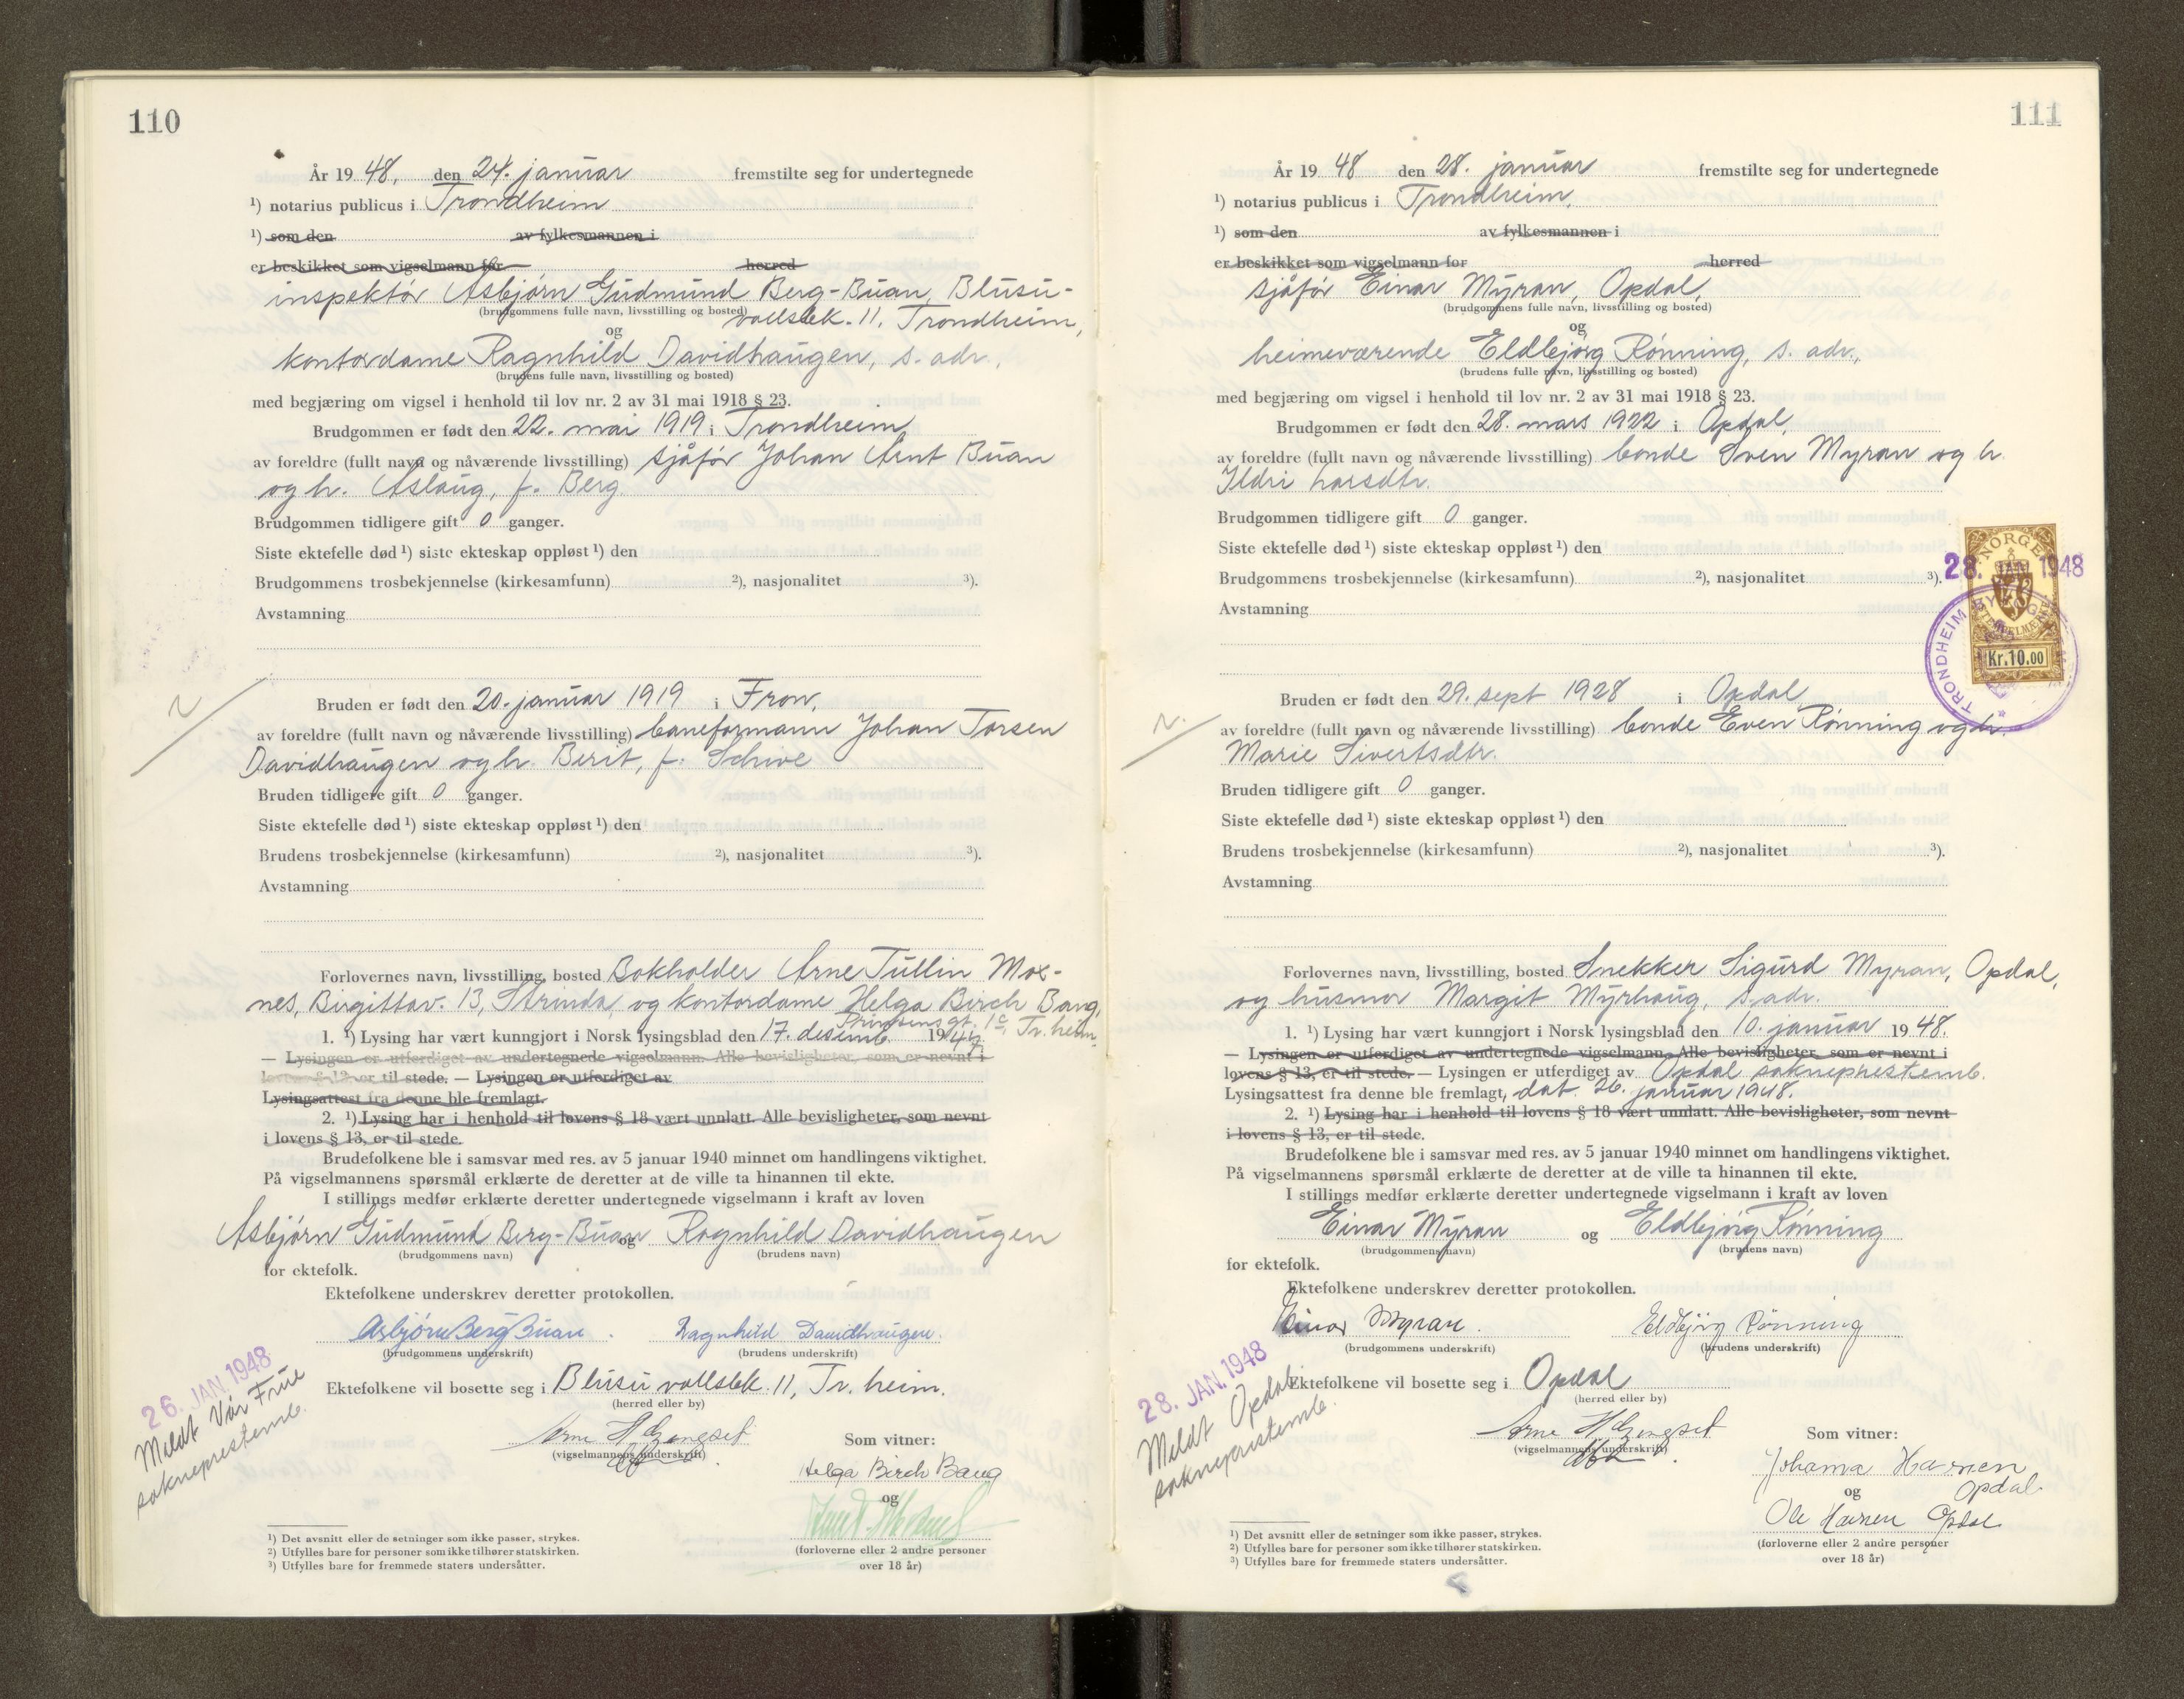 110
År 1948, den 24. januar fremstilte seg for undertegnede
¹) notarius publicus i Trondheim
¹) som den av fylkesmannen i
er beskikket som vigselmann for herred
inspektør Asbjørn Gudmund Berg-Buan, Blusu-
(brudgommens fulle navn, livsstilling og bosted)
vollsbk. 11, Trondheim,
og
kontordame Ragnhild Davidhaugen, s. adr.,
(brudens fulle navn, livsstilling og bosted)
med begjæring om vigsel i henhold til lov nr. 2 av 31 mai 1918 § 23.
Brudgommen er født den 22. mai 1919 i Trondheim
av foreldre (fullt navn og nåværende livsstilling) sjåfør Johan Arnt Buan
og h. Aslaug, f. Berg.
Brudgommen tidligere gift 0 ganger.
Siste ektefelle død ¹) siste ekteskap oppløst ¹) den
Brudgommens trosbekjennelse (kirkesamfunn) ²), nasjonalitet ³).
Avstamning
Bruden er født den 20. januar 1919 i Fron,
av foreldre (fullt navn og nåværende livsstilling) baneformann Johan Torsen
Davidhaugen og h. Berit, f. Schive
Bruden tidligere gift 0 ganger.
Siste ektefelle død ¹) siste ekteskap oppløst ¹) den
Brudens trosbekjennelse (kirkesamfunn) ²), nasjonalitet ³).
Avstamning
Forlovernes navn, livsstilling, bosted Bokholder Arne Tullin Mox-
nes, Birgittav. 13, Strinda, og kontordame Helga Birch Bang,
Prinsens gt. 1c, Tr.heim.
1. ¹) Lysing har vært kunngjort i Norsk lysingsblad den 17. desemb. 1947
— Lysingen er utferdiget av undertegnede vigselmann. Alle bevisligheter, som er nevnt i
lovens § 13, er til stede. — Lysingen er utferdiget av
Lysingsattest fra denne ble fremlagt.
2. ¹) Lysing har i henhold til lovens § 18 vært unnlatt. Alle bevisligheter, som nevnt
i lovens § 13, er til stede.
Brudefolkene ble i samsvar med res. av 5 januar 1940 minnet om handlingens viktighet.
På vigselmannens spørsmål erklærte de deretter at de ville ta hinannen til ekte.
I stillings medfør erklærte deretter undertegnede vigselmann i kraft av loven
Asbjørn Gudmund Berg-Buan og Ragnhild Davidhaugen
(brudgommens navn) (brudens navn)
for ektefolk.
Ektefolkene underskrev deretter protokollen.
Asbjørn Berg Buan. Ragnhild Davidhaugen.
(brudgommens underskrift) (brudens underskrift)
Ektefolkene vil bosette seg i Blusuvollsbk. 11, Tr.heim.
(herred eller by)
26. JAN. 1948
Meldt Vår Frue
sokneprestemb.
(vigselmannens underskrift)
Som vitner:
Helga Birch Bang
og
(forloverne eller 2 andre personer
over 18 år)
¹) Det avsnitt eller de setninger som ikke passer, strykes.
²) Utfylles bare for personer som ikke tilhører statskirken.
³) Utfylles bare for fremmede staters undersåtter.
111
År 1948 den 28. januar fremstilte seg for undertegnede
¹) notarius publicus i Trondheim,
¹) som den av fylkesmannen i
er beskikket som vigselmann for herred
sjåfør Einar Myran, Opdal,
(brudgommens fulle navn, livsstilling og bosted)
og
heimeværende Eldbjørg Rønning, s. adr.,
(brudens fulle navn, livsstilling og bosted)
med begjæring om vigsel i henhold til lov nr. 2 av 31 mai 1918 § 23.
Brudgommen er født den 28. mars 1922 i Opdal,
av foreldre (fullt navn og nåværende livsstilling) bonde Sven Myran og h.
Ildri Larsdtr.
Brudgommen tidligere gift 0 ganger.
Siste ektefelle død ¹) siste ekteskap oppløst ¹) den
Brudgommens trosbekjennelse (kirkesamfunn) ²), nasjonalitet ³).
Avstamning
NORGE
28. JAN. 1948
STEMPELMERKE
Kr.10.00
TRONDHEIM
Bruden er født den 29. sept 1928 i Opdal
av foreldre (fullt navn og nåværende livsstilling) bonde Even Rønning og h.
Marie Sivertsdtr.
Bruden tidligere gift 0 ganger.
Siste ektefelle død ¹) siste ekteskap oppløst ¹) den
Brudens trosbekjennelse (kirkesamfunn) ²), nasjonalitet ³).
Avstamning
Forlovernes navn, livsstilling, bosted Snekker Sigurd Myran, Opdal,
og husmor Margit Myrhaug, s. adr.
1. ¹) Lysing har vært kunngjort i Norsk lysingsblad den 10. januar 1948.
— Lysingen er utferdiget av undertegnede vigselmann. Alle bevisligheter, som er nevnt i
lovens § 13, er til stede. — Lysingen er utferdiget av Opdal sokneprestemb.
Lysingsattest fra denne ble fremlagt, dat. 26. januar 1948.
2. ¹) Lysing har i henhold til lovens § 18 vært unnlatt. Alle bevisligheter, som nevnt
i lovens § 13, er til stede.
Brudefolkene ble i samsvar med res. av 5 januar 1940 minnet om handlingens viktighet.
På vigselmannens spørsmål erklærte de deretter at de ville ta hinannen til ekte.
I stillings medfør erklærte deretter undertegnede vigselmann i kraft av loven
Einar Myran og Eldbjørg Rønning
(brudgommens navn) (brudens navn)
for ektefolk.
Ektefolkene underskrev deretter protokollen.
Einar Myran. Eldbjörg Rönning
(brudgommens underskrift) (brudens underskrift)
Ektefolkene vil bosette seg i Opdal
(herred eller by)
28. JAN. 1948
Meldt Opdal
sokneprestemb.
(vigselmannens underskrift)
Som vitner:
Opdal
og
Ole Opdal
(forloverne eller 2 andre personer
over 18 år)
¹) Det avsnitt eller de setninger som ikke passer, strykes.
²) Utfylles bare for personer som ikke tilhører statskirken.
³) Utfylles bare for fremmede staters undersåtter.